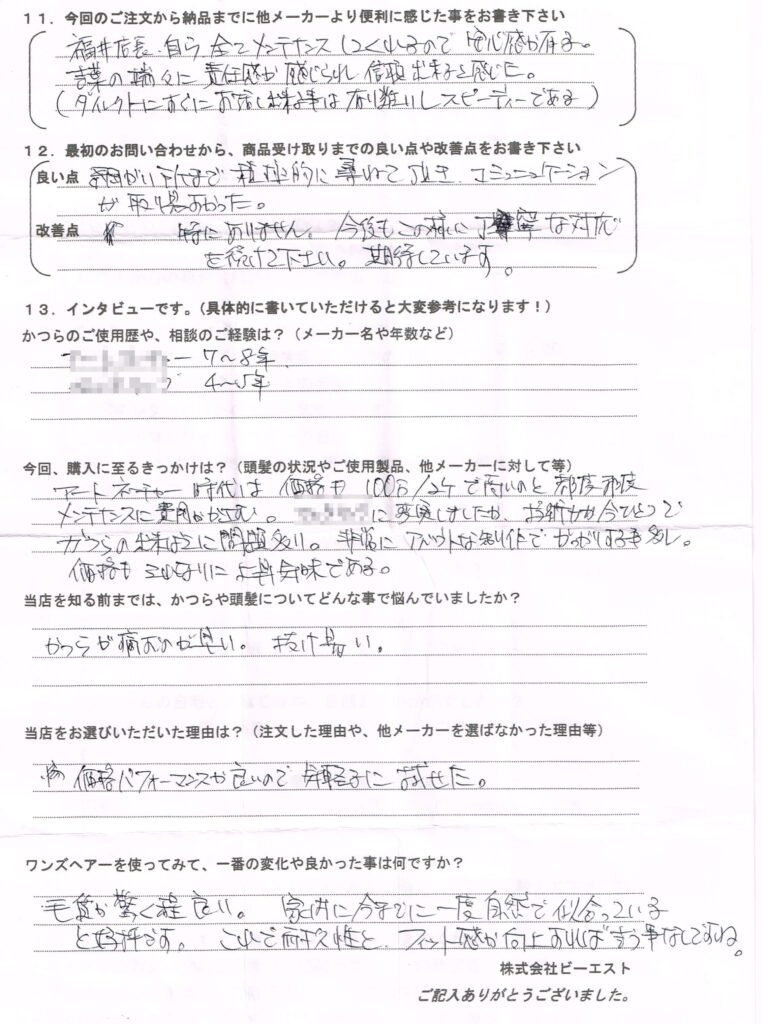 11．今回のご注文から納品までに他メーカーより便利に感じた事をお書き下さい
福井店長 自ら 全てメンテナンスしてくれるので 安心感が有る。
言葉の端々に 責任感が感じられ 信頼出来ると感じた。
(ダイレクトにすぐにお話し出来る事は有り難いしスピーディーである)
12．最初のお問い合わせから、商品受け取りまでの良い点や改善点をお書き下さい
良い点 細かい所まで 積極的に 尋ねて頂き、コミュニュケーション
が 取り易かった。
改善点 特にありません。今後もこの様に丁寧な対応
を続けて下さい。期待しています。
13．インタビューです。（具体的に書いていただけると大変参考になります！）
かつらのご使用歴や、相談のご経験は？（メーカー名や年数など）
7～8年
4～5年
今回、購入に至るきっかけは？（頭髪の状況やご使用製品、他メーカーに対して等）
アートネーチャー時代は 価格も 100万/2ケで高いのと 都度都度
メンテナンスに費用がかさむ。 に変更しましたが、お技術が今ひとつで
かつらの出来上りに問題多い。非常にアバウトな製作でがっかりする事多し。
価格も それなりに 上昇気味である。
当店を知る前までは、かつらや頭髪についてどんな事で悩んでいましたか？
かつらが痛むのが早い。 抜け易い。
当店をお選びいただいた理由は？（注文した理由や、他メーカーを選ばなかった理由等）
価格パフォーマンスが良いので 気軽に 試せた。
ワンズヘアーを使ってみて、一番の変化や良かった事は何ですか？
毛質が驚く程良い。 家内に今までに一度自然で似合っている
と好評です。 これで耐久性と、フィット感が向上すれば言う事なしですね。
株式会社ビーエスト
ご記入ありがとうございました。